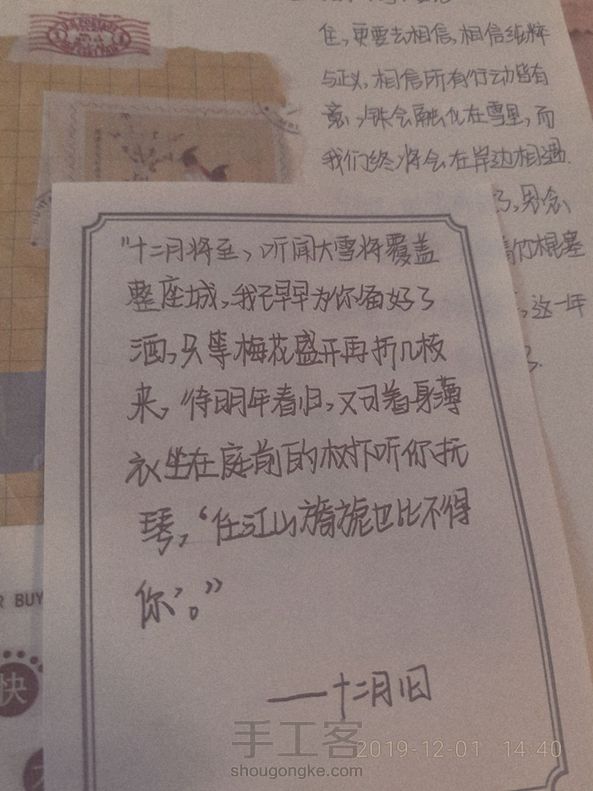 住,更要去相信,相信纯粹
与正义,相信所有行动皆有
意,铁会融化在雪里,而
我们终将会在岸边相遇.
了,思念,
着竹棍塞
,这一年
"十二月将至,听闻大雪将覆盖
整座城,我已早早为你备好了
酒,只等梅花盛开再折几枝
来,待明年春归,又可着身薄
衣坐在庭前的树下听你抚
琴,‘任江山旖旎也比不得
你’。”
——十二月旧
R BUY
快
手工客
shougongke.com
2019-12-01 14:40